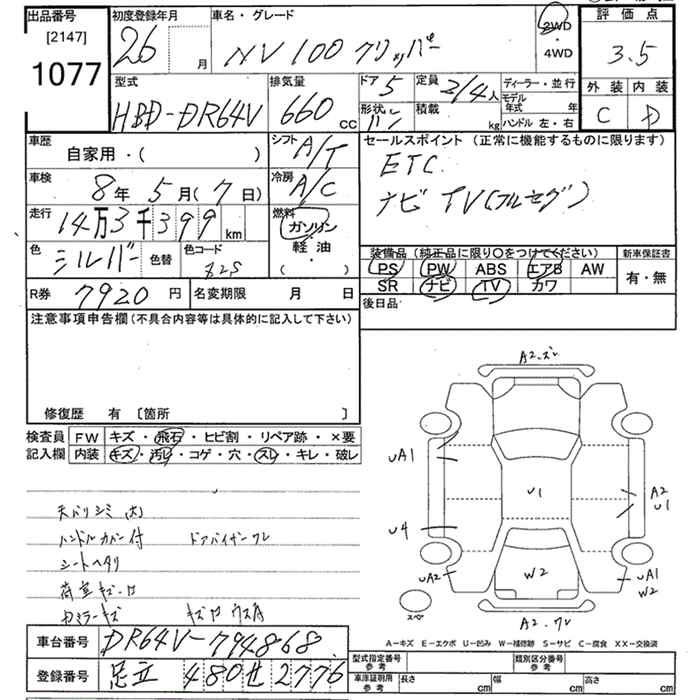 出品番号 初度登録年月 車名・グレード 2WD 評価点
[2147] 26 月 NV100クリッパー ・ 3.5
1077 4WD
型式 排気量 ドア 5 定員 2/4人 ディーラー・並行 外装 内装
HBD-DR64V 660 CC 形状 バン 積載 kg モデル年式 年 C D
ハンドル 左・右
車歴 シフト A/T セールスポイント (正常に機能するものに限ります)
自家用・( ) ETC
車検 8年5月(7日) 冷房 A/C ナビ TV(フルセグ)
走行 14万3千399km 燃料 ガソリン
色 シルバー 色替 色コード Z2S 軽油・( ) 装備品 (純正品に限り○をつけてください) 新車保証書
PS PW ABS エアB AW 有・無
R券 7920円 名変期限 月 日 SR ナビ TV カワ
注意事項申告欄 (不具合内容等は具体的に記入して下さい) 後日品
修復歴 有 [箇所 ]
検査員 FW キズ・飛石・ヒビ割・リペア跡・×要
記入欄 内装 キズ・汚レ・コゲ・穴・スレ・キレ・破レ
天バリシミ(大)
ハンドルカバー付 ドアバイザーワレ
シートヘタリ
荷室キズ・凹
Rミラーキズ
A2・ズレ
UA1
U1
A2
U1
U4
UA2
W2
UA1
W2
スペア
A2・ワレ
A－キズ E－エクボ U－凹み W－補修跡 S－サビ C－腐食 XX－交換済
車台番号 DR64V-794868 型式指定番号 参考 類別区分番号 参考
登録番号 足立 480 せ 2776 車庫証明用 参考 長さ cm 幅 cm 高さ cm